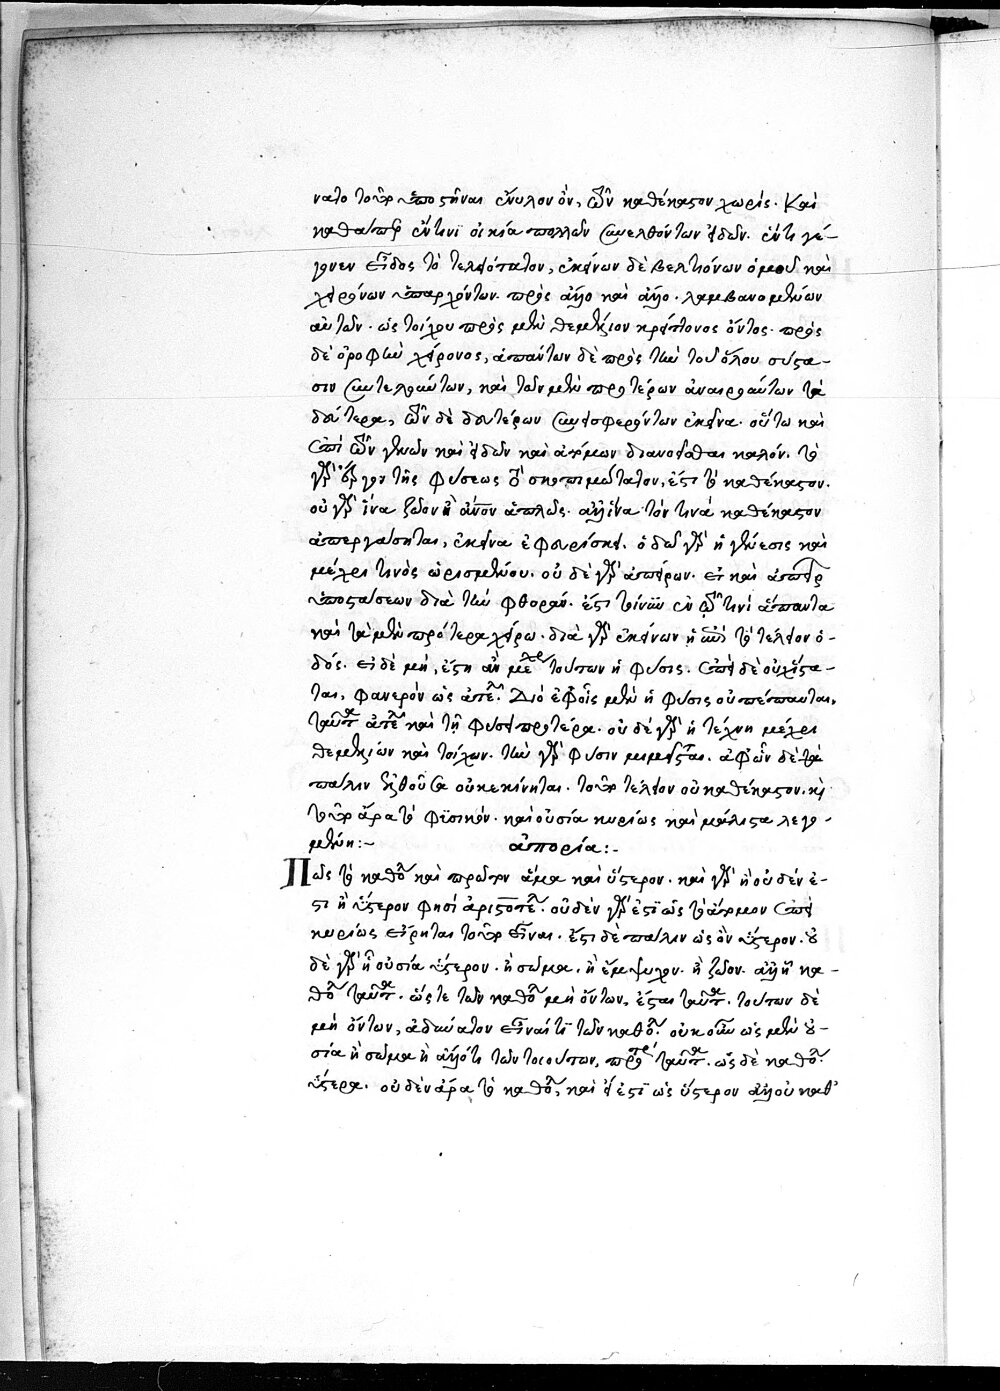 νατο τοῦ ὑποστῆναι ἔνυλον ὄν, τῶν καθέκαστον χωρίς. Καὶ
καθάπερ ἔν τινι οἰκία πολλῶν συνελθόντων εἰδῶν. ἕν τι γέ-
γονεν εἶδος τὸ τελειότατον, ἐκείνων δὲ βελτιόνων ὁμοῦ καὶ
χειρόνων ὑπαρχόντων. πρὸς ἄλλο καὶ ἄλλο. λαμβανομένων
αὐτῶν. ὡς τοίχου πρὸς μὲν θεμέλιον κρείττονος ὄντος. πρὸς
δὲ ὀροφὴν χείρονος, ἁπάντων δὲ πρὸς τὴν τοῦ ὅλου σύστα-
σιν συντελούντων, καὶ τῶν μὲν προτέρων ἀναιρούντων τὰ
δεύτερα, τῶν δὲ δευτέρων συνεισφερόντων ἐκεῖνα. οὕτω καὶ
ἐπὶ τῶν γενῶν καὶ εἰδῶν καὶ ἀτόμων διανοεῖσθαι καλόν. τὸ
γὰρ ἔργον τῆς φύσεως τὸ σκοπιμώτατον, ἐστὶ τὸ καθέκαστον.
οὐ γὰρ ἵνα ζῶον ἢ ἄνον ἁπλῶς. ἀλλ' ἵνα τόν τινὰ καθέκαστον
ἀπεργάσηται, ἐκεῖνα ἐφευρίσκει. ὁδῶ γὰρ ἡ γένεσις καὶ
μέχρι τινὸς ὡρισμένου. οὐδὲ γὰρ ἀπείρων. εἰ καὶ ἀπείρ
ὑποστάσεων διὰ τὴν φθοράν. ἔστι τοίνυν ἐν τῶ τινὶ ἅπαντα
καὶ τὰ μὲν πρότερα χείρω. διὰ γὰρ ἐκείνων ἡ ἐπὶ τὸ τέλειον ὁ-
δός. εἰ δὲ μὴ, ἔστη ἂν μέχρι τούτων ἡ φύσις. ἐπεὶ δὲ οὐχ ἵστα-
ται, φανερὸν ὡς ἀτελῆ. Διὸ ἐφ' οἷς μὲν ἡ φύσις οὐ πέπαυται,
ταῦτα ἀτελῆ καὶ τῆ φύσει πρότερα. οὐδὲ γὰρ ἡ τέχνη μέχρι
θεμελίων καὶ τοίχων. τὴν γὰρ φύσιν μιμεῖται. ἀφ' ὧν δὲ τὰ
πάλιν ἐλθοῦσα οὐκ ἐκίνηται. τοῦτο τέλειον οὐ καθέκαστον. κὶ
τοῦτο ἄρα τὸ φυσικόν. καὶ οὐσία κυρίως καὶ μάλιστα λεγο-
μένη:-
ἀπορία:-
Πῶς τὸ καθόλου καὶ πρῶτον ἅμα καὶ ὕστερον. καὶ γὰρ ἢ οὐδέν ἐ-
στι ἢ ὕστερον φησὶ ἀριστοτέλης. οὐδὲν γὰρ ἐστὶ ὡς τὸ ἄτομον ἐπεὶ
κυρίως εἴρηται τοῦτο εἶναι. ἔστι δὲ πάλιν ὡς ὂν ὕστερον. οὐ
δὲ γὰρ ἢ οὐσία ὕστερον. ἢ σῶμα, ἢ ἔμψυχον. ἢ ζῶον. ἀλλ' ἢ κα-
θόλου ταῦτα. ὥστε τῶν καθόλου μὴ ὄντων, ἔσται ταῦτα. τούτων δὲ
μὴ ὄντων, ἀδύνατον εἶναί τι τῶν καθόλου. οὐκοῦν ὡς μὲν οὐ-
σία ἢ σῶμα ἢ ἄλλό τι τῶν τοιούτων, πρότερα ταῦτα. ὡς δὲ καθόλου
ὕστερα. οὐδὲν ἄρα τὸ καθόλου, καὶ εἰ ἐστὶ ὡς ὕστερον ἀλλ' οὐ καθ'